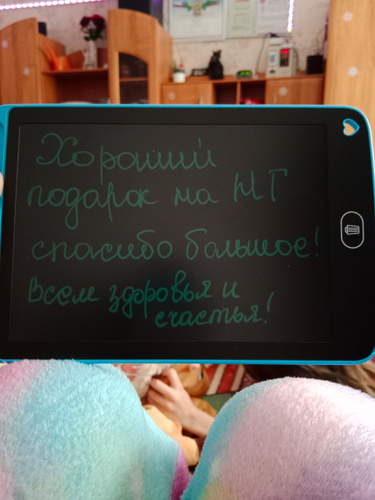 Хороший
подарок на НГ
спасибо большое!
Всем здоровья и
счастья!